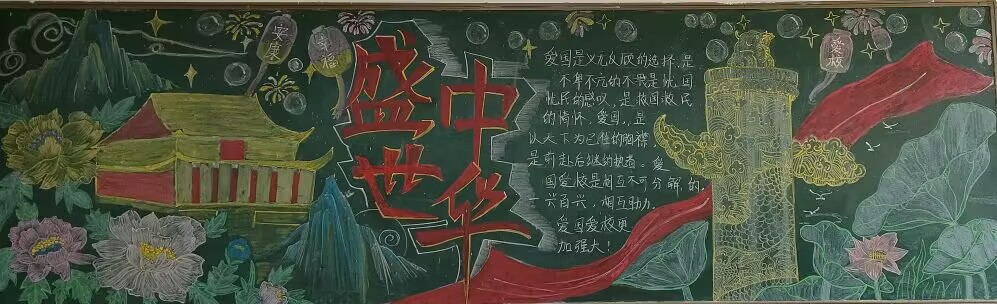 国庆
幸福
盛世
中华
爱国是义无反顾的选择,是
不卑不亢的不畏是忧国
忧民的感叹,是救国救民
的情怀,爱国,是
以天下为己任的胸襟,
是前赴后继的执着。爱
国爱校是相互不可分解的,
一六百六,相互助力,
爱国爱校更
加强大!
爱校